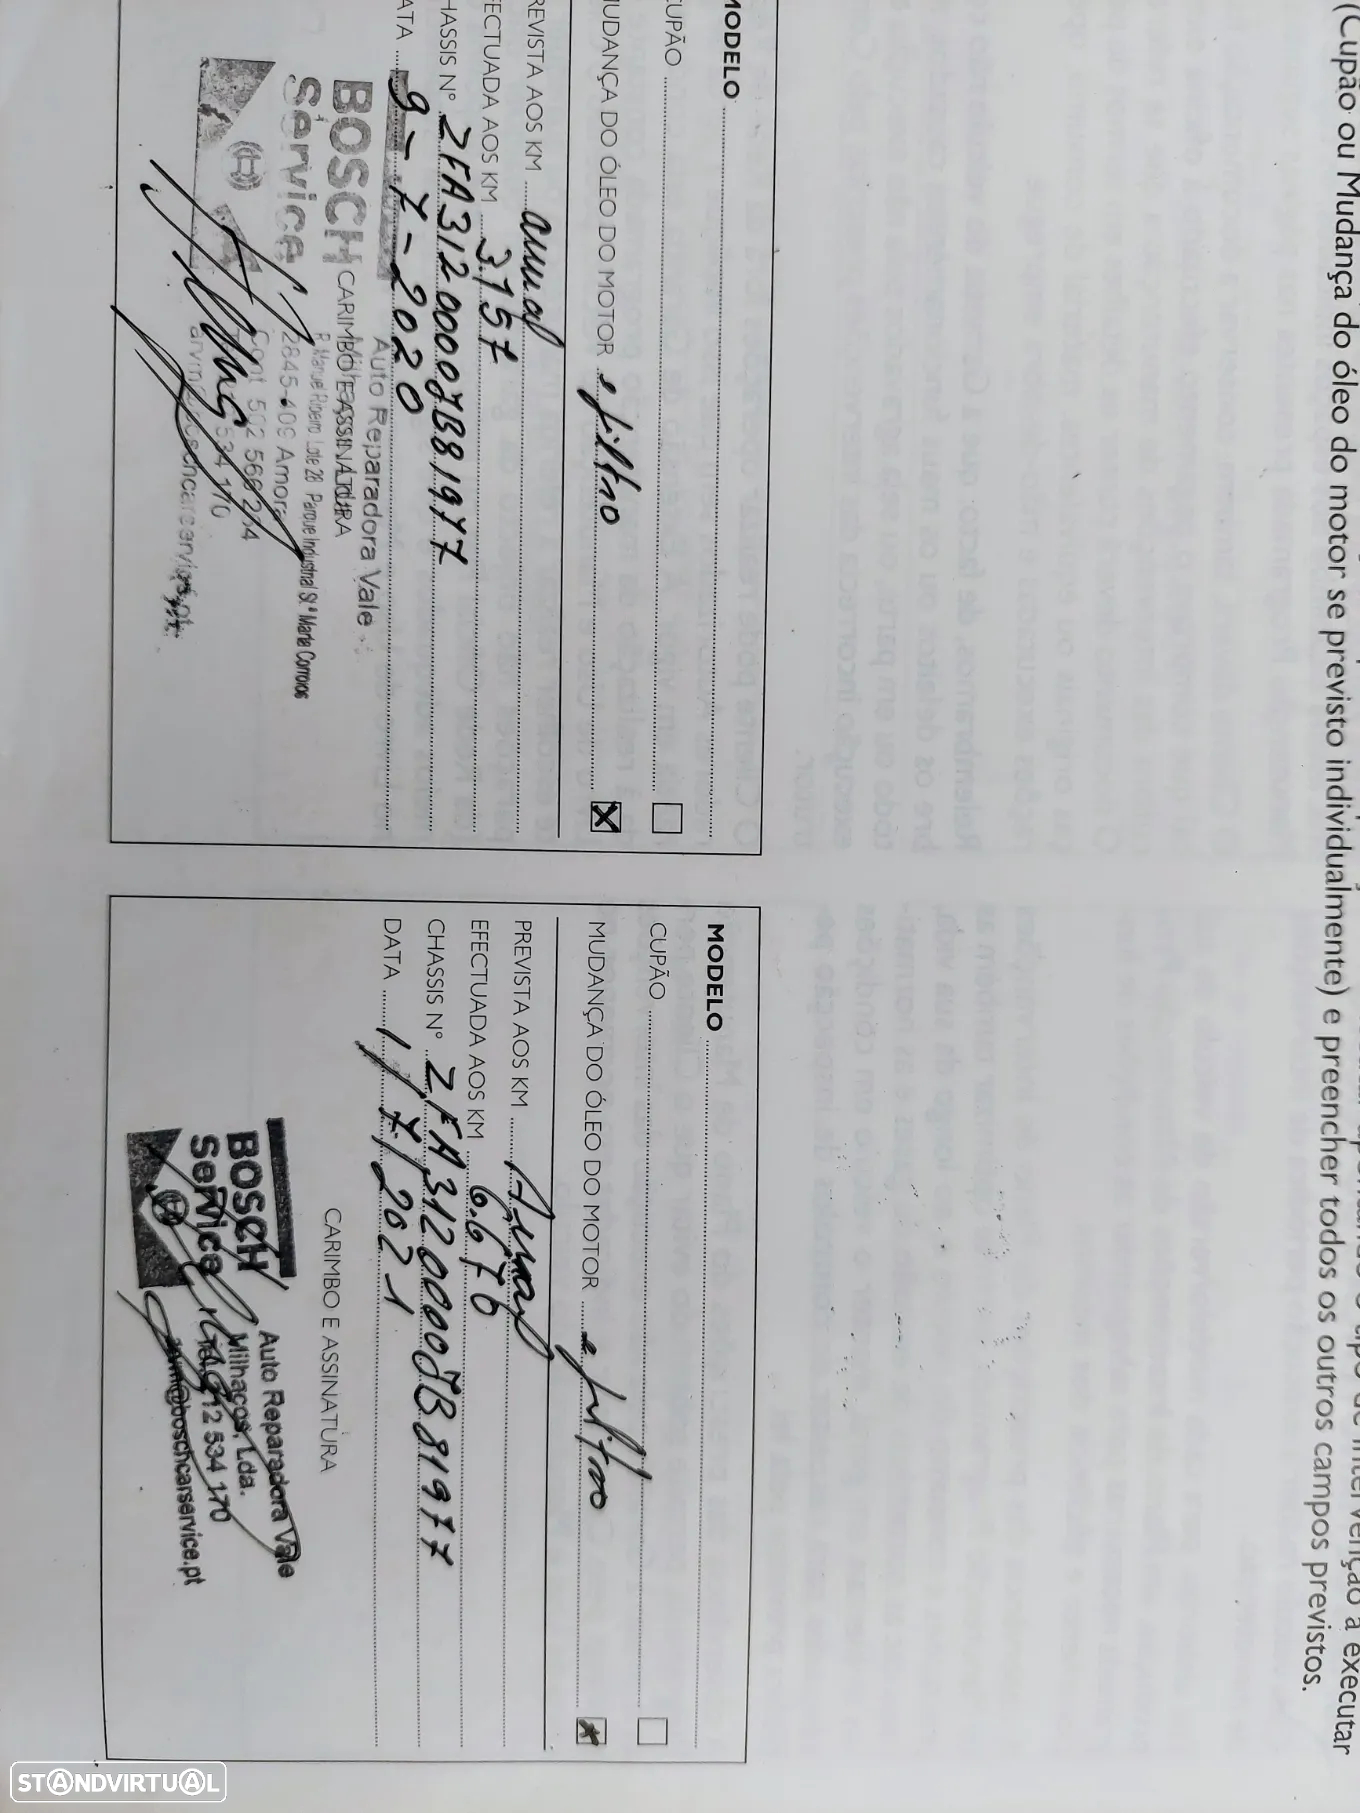 (Cupão ou Mudança do óleo do motor se previsto individualmente) e preencher todos os outros campos previstos.
MODELO
CUPÃO
MUDANÇA DO ÓLEO DO MOTOR e filtro X
PREVISTA AOS KM anual
EFECTUADA AOS KM 3.157
CHASSIS Nº ZFA3120000JB81977
DATA 9-7-2020
CARIMBO E ASSINATURA
BOSCH
Service
Auto Reparadora Vale
R. Manuel Ribeiro Lote 28 Parque Industrial Stª Marta Corroios
2845-409 Amora
MODELO
CUPÃO
MUDANÇA DO ÓLEO DO MOTOR e filtro x
PREVISTA AOS KM Anual
EFECTUADA AOS KM 6.676
CHASSIS Nº ZFA3120000JB81977
DATA 1/7/2021
CARIMBO E ASSINATURA
BOSCH
Service
Auto Reparadora Vale
Milhaços, Lda.
212 534 170
arvm@boschcarservice.pt
STANDVIRTUAL